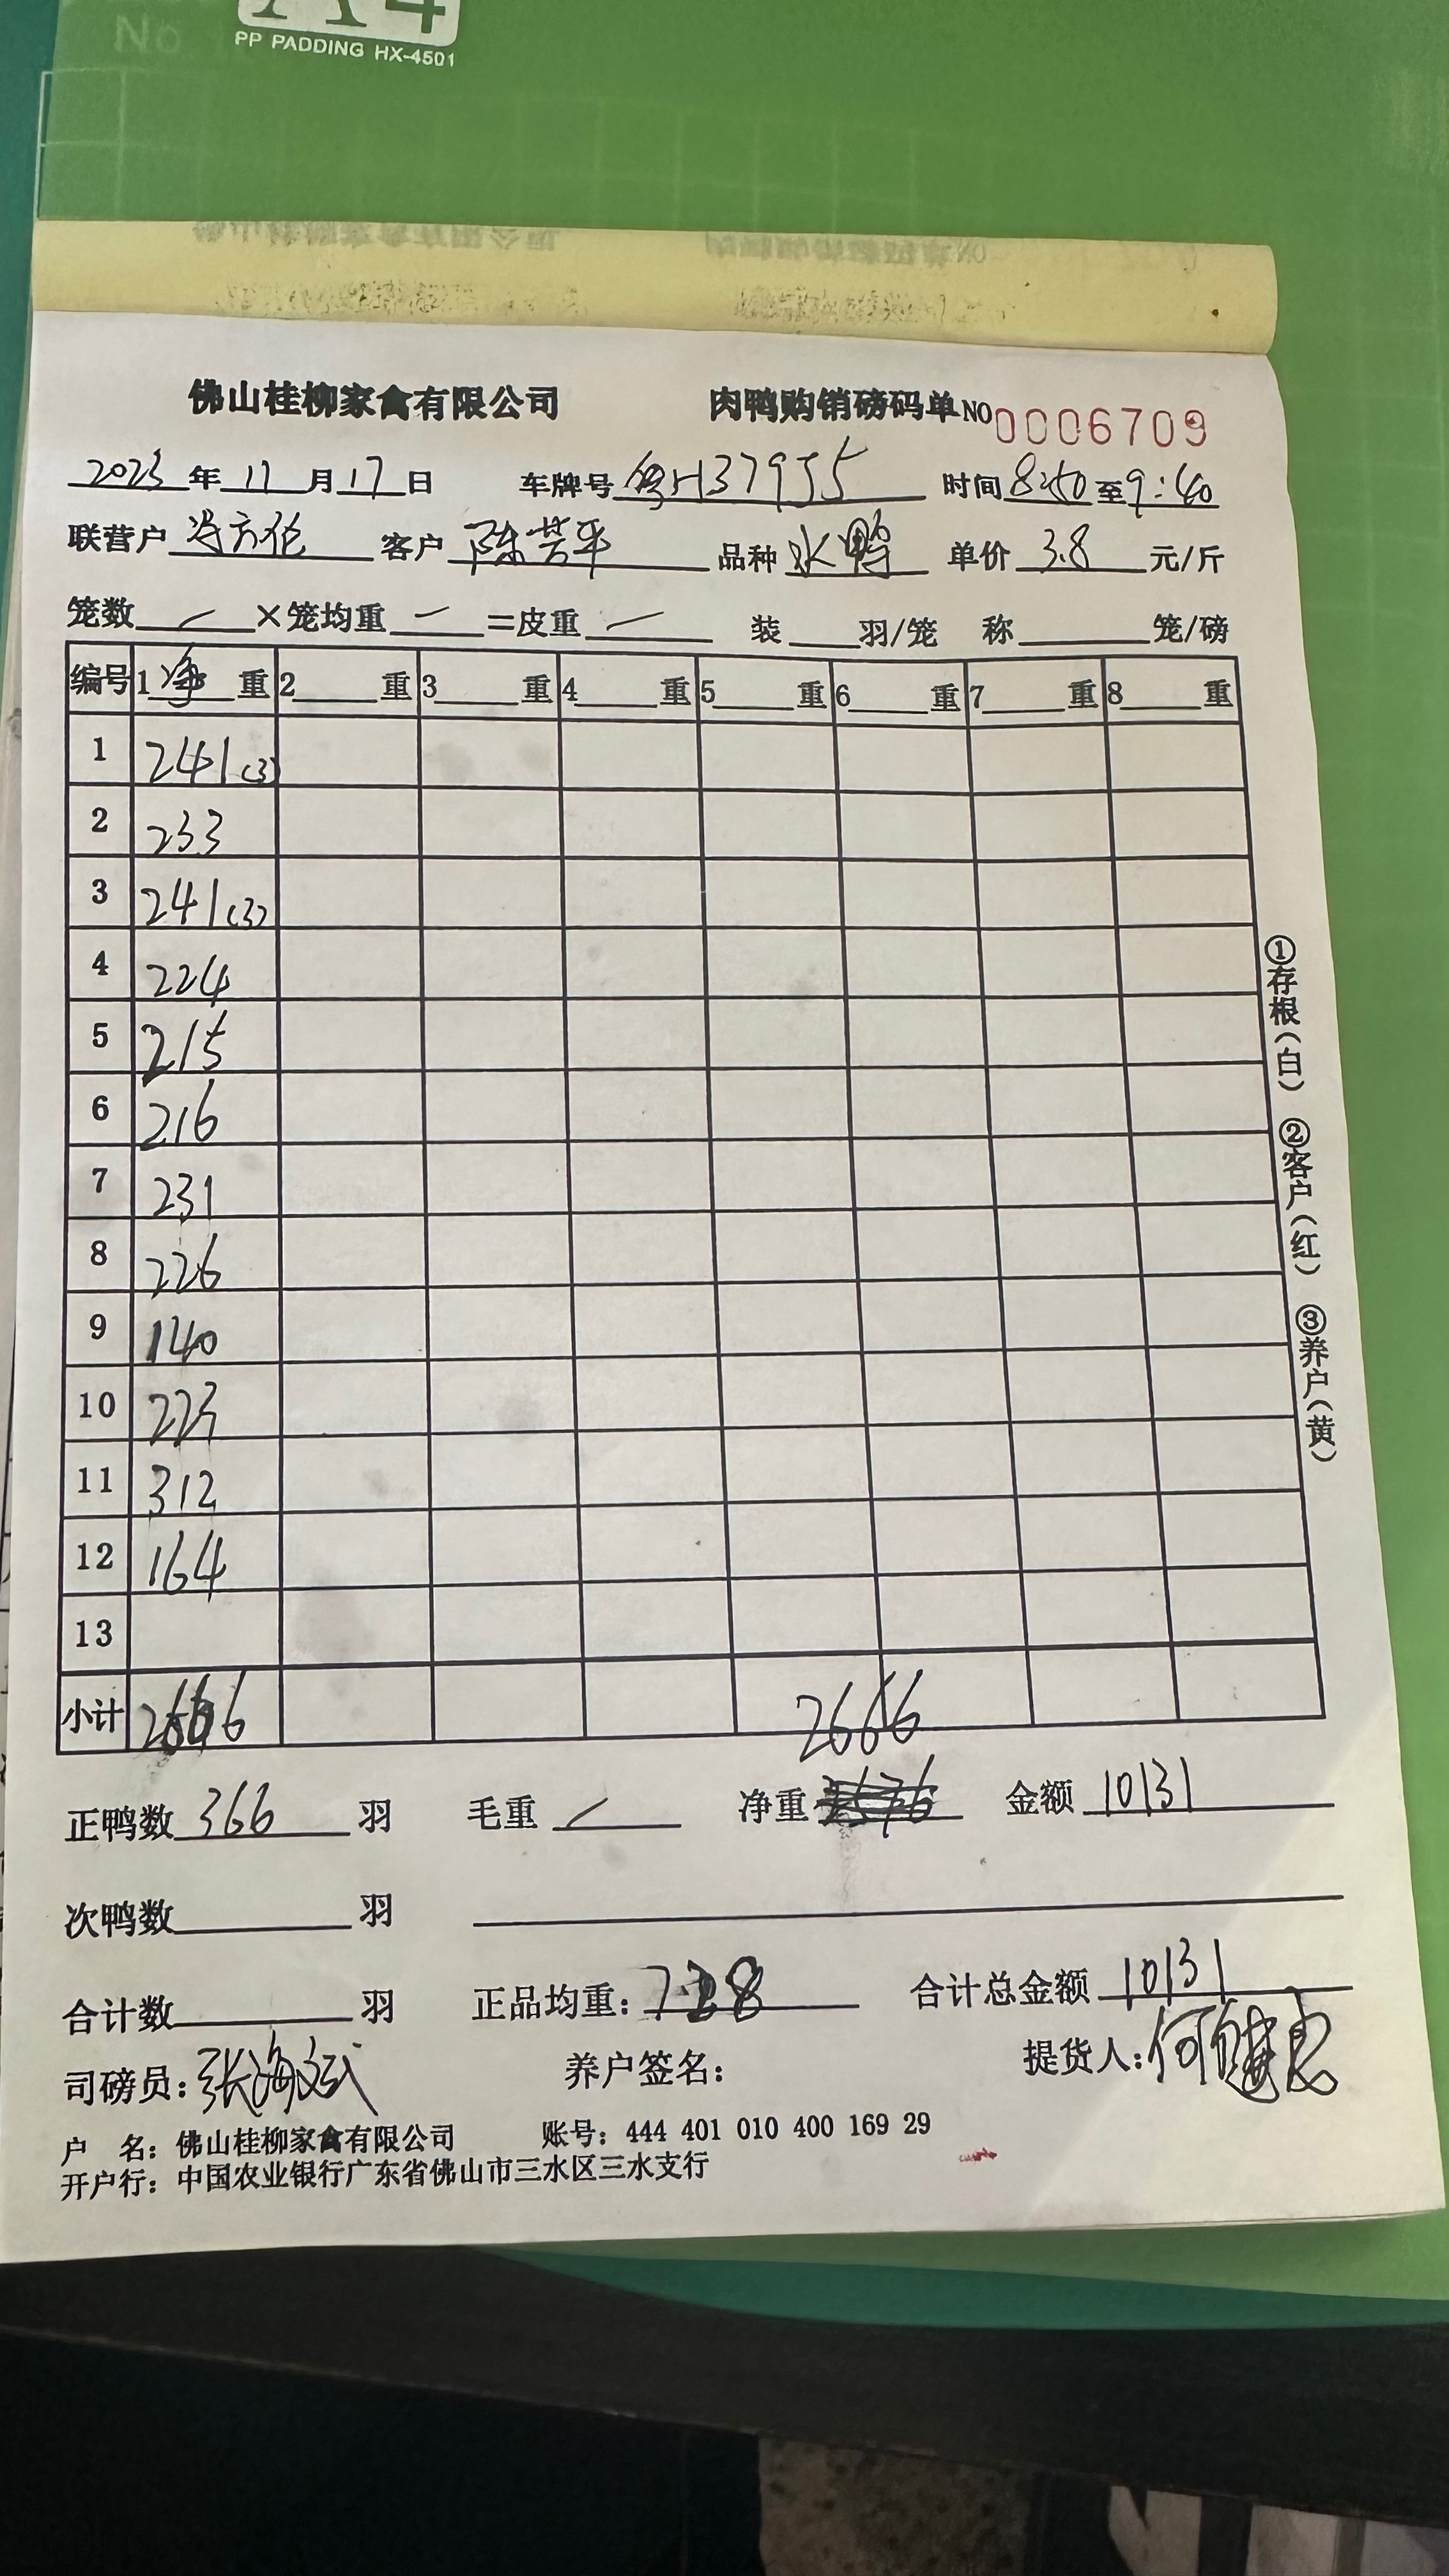 A4
No
PP PADDING HX-4501
佛山桂柳家禽有限公司 肉鸭购销磅码单 NO 0006709
2023年11月17日 车牌号 粤H37955 时间 8:50至9:40
联营户 客户 陈芳平 品种 水鸭 单价 3.8 元/斤
笼数 / ×笼均重 / =皮重 / 装 羽/笼 称 笼/磅
编号 1净重 2 重 3 重 4 重 5 重 6 重 7 重 8 重
1 241(3)
2 233
3 241(3)
4 224
5 215
6 216
7 231
8 226
9 140
10 223
11 312
12 164
13
小计 2666 2666
正鸭数 366 羽 毛重 / 净重 金额 10131
次鸭数 羽
合计数 羽 正品均重: 7.28 合计总金额 10131
司磅员: 张海斌 养户签名: 提货人: 何健忠
户 名: 佛山桂柳家禽有限公司 账号: 444 401 010 400 169 29
开户行: 中国农业银行广东省佛山市三水区三水支行
①存根(白) ②客户(红) ③养户(黄)